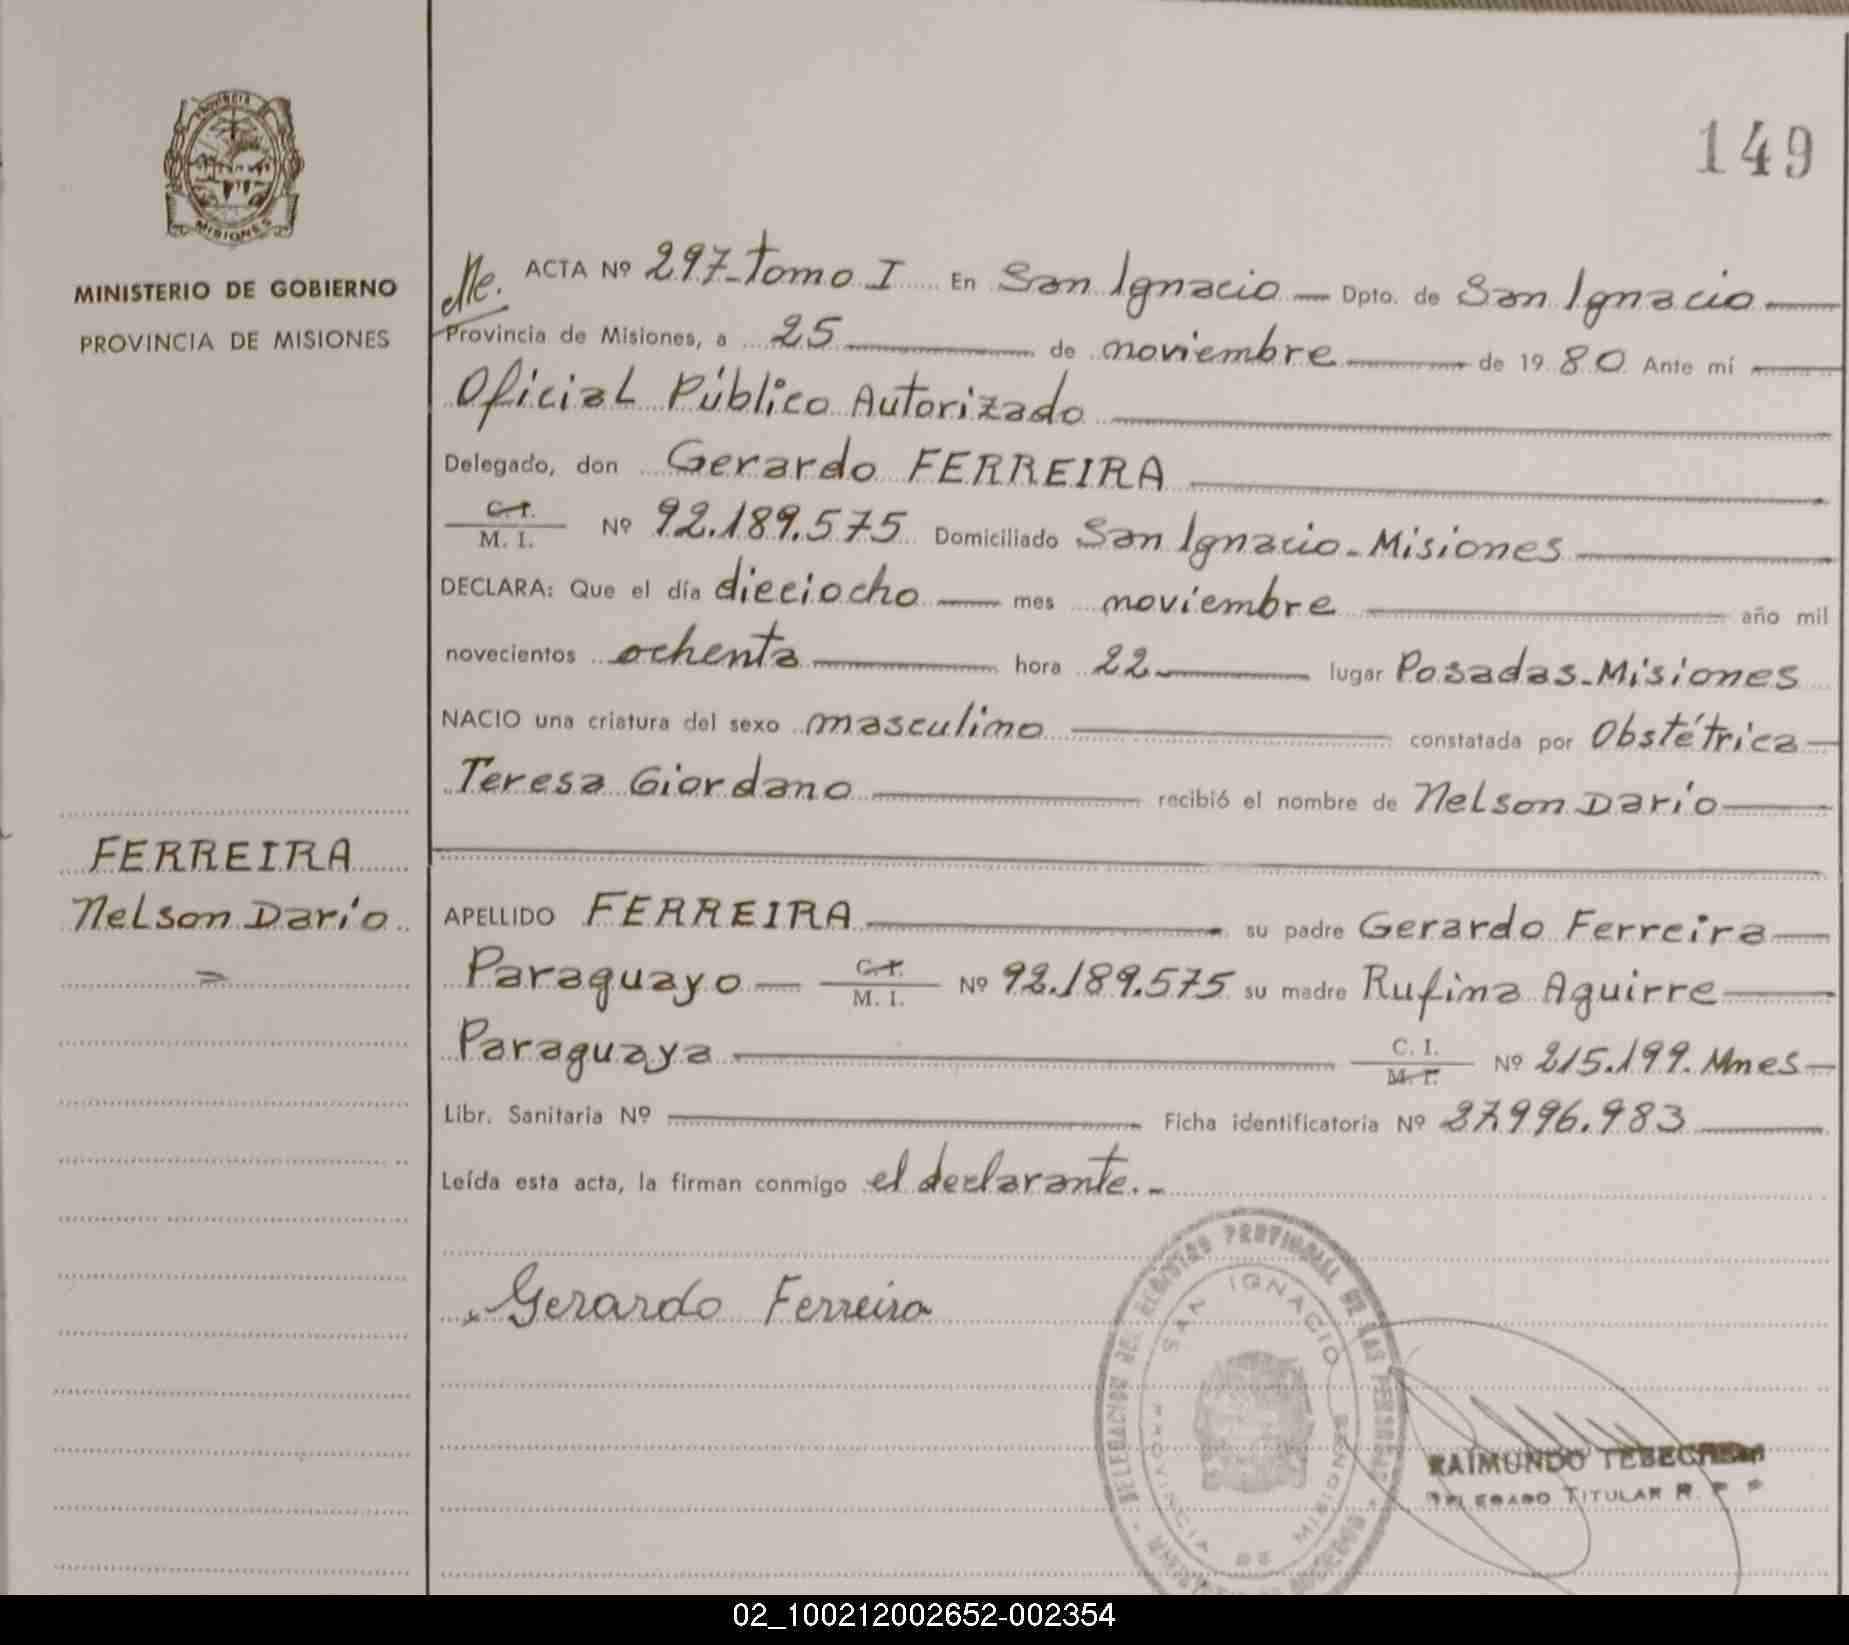 149
PROVINCIA DE
MISIONES
MINISTERIO DE GOBIERNO
PROVINCIA DE MISIONES
FERREIRA
Nelson Darío
ACTA Nº 297-Tomo I En San Ignacio Dpto. de San Ignacio
Provincia de Misiones, a 25 de noviembre de 1980 Ante mí
Oficial Público Autorizado
Delegado, don Gerardo FERREIRA
C. I.
M. I. Nº 92.189.575 Domiciliado San Ignacio-Misiones
DECLARA: Que el día dieciocho mes noviembre año mil
novecientos ochenta hora 22 lugar Posadas-Misiones
NACIO una criatura del sexo masculino constatada por Obstétrica
Teresa Giordano recibió el nombre de Nelson Darío
APELLIDO FERREIRA su padre Gerardo Ferreira
Paraguayo C. I. M. I. Nº 92.189.575 su madre Rufina Aguirre
Paraguaya C. I. M. I. Nº 215.199. Mnes
Libr. Sanitaria Nº Ficha identificatoria Nº 27.996.983
Leída esta acta, la firman conmigo el declarante.-
Gerardo Ferreira
DELEGACION DEL REGISTRO PROVINCIAL DE LAS PERSONAS
SAN IGNACIO
PROVINCIA DE MISIONES
RAIMUNDO
DELEGADO TITULAR R. P. P.
02_100212002652-002354